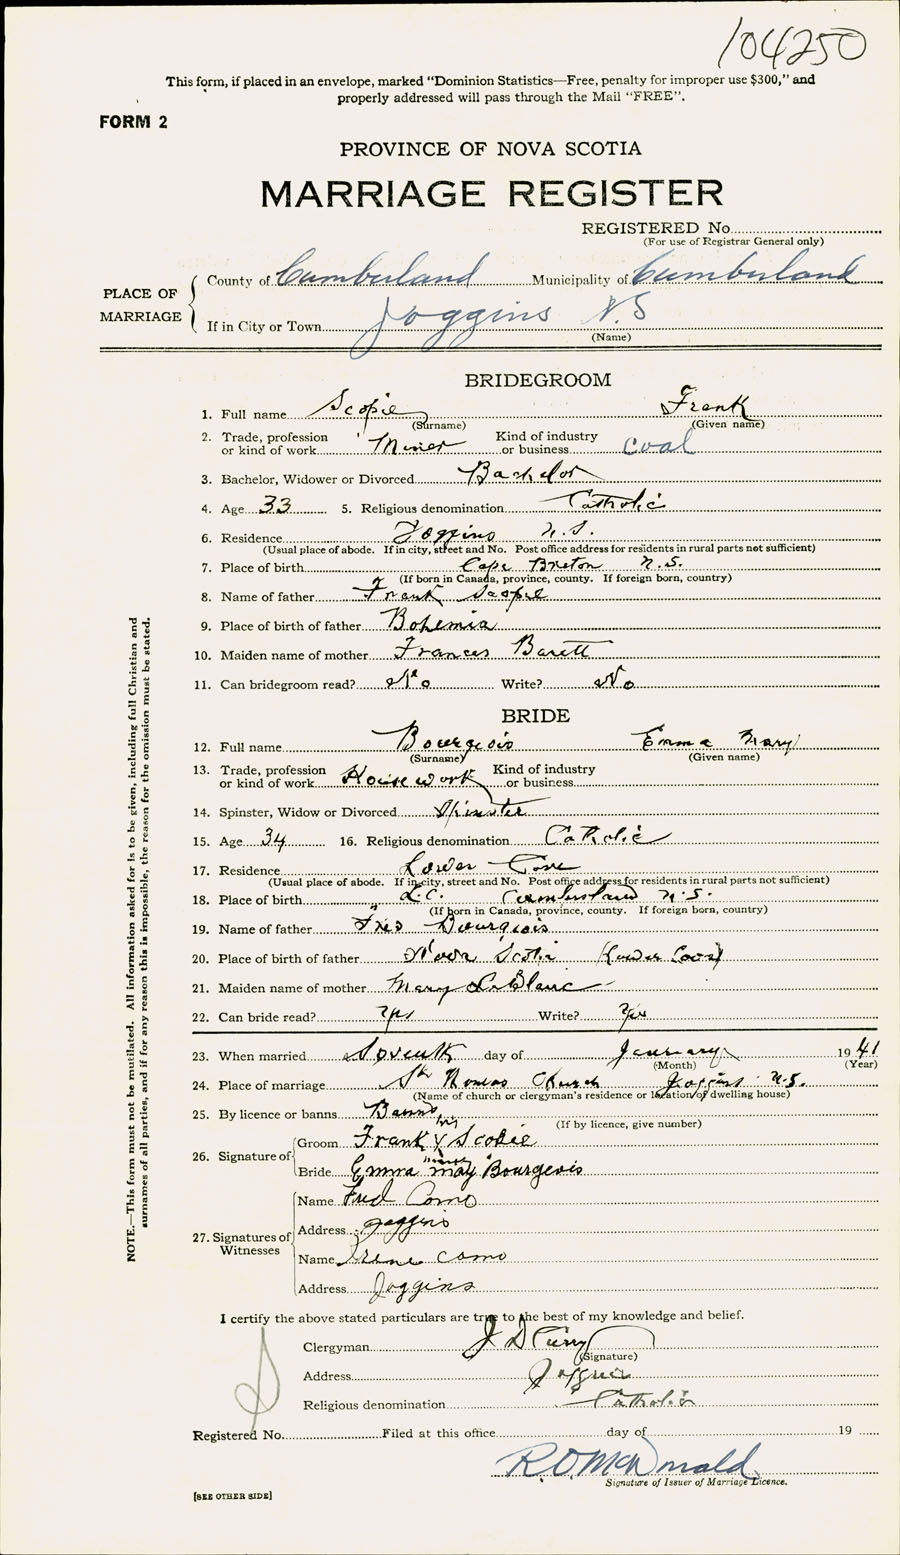 104250
This form, if placed in an envelope, marked "Dominion Statistics—Free, penalty for improper use $300," and
properly addressed will pass through the Mail "FREE".
FORM 2
PROVINCE OF NOVA SCOTIA
MARRIAGE REGISTER
REGISTERED No.
(For use of Registrar General only)
PLACE OF MARRIAGE
County of Cumberland Municipality of Cumberland
If in City or Town Joggins N.S
(Name)
BRIDEGROOM
1. Full name Scopie Frank
(Surname) (Given name)
2. Trade, profession or kind of work Miner Kind of industry or business coal
3. Bachelor, Widower or Divorced Bachelor
4. Age 33 5. Religious denomination Catholic
6. Residence Joggins N.S.
(Usual place of abode. If in city, street and No. Post office address for residents in rural parts not sufficient)
7. Place of birth Cape Breton N.S.
(If born in Canada, province, county. If foreign born, country)
8. Name of father Frank Scopie
9. Place of birth of father Bohemia
10. Maiden name of mother Frances Barett
11. Can bridegroom read? No Write? No
BRIDE
12. Full name Bourgeois Emma Mary
(Surname) (Given name)
13. Trade, profession or kind of work Housework Kind of industry or business
14. Spinster, Widow or Divorced Spinster
15. Age 34 16. Religious denomination Catholic
17. Residence Lower Cove
(Usual place of abode. If in city, street and No. Post office address for residents in rural parts not sufficient)
18. Place of birth L.C. Cumberland N.S.
(If born in Canada, province, county. If foreign born, country)
19. Name of father Bourgeois
20. Place of birth of father Nova Scotia (Lower Cove)
21. Maiden name of mother Mary LeBlanc
22. Can bride read? yes Write? yes
23. When married Seventh day of January 1941
(Month) (Year)
24. Place of marriage St Thomas Church Joggins N.S.
(Name of church or clergyman's residence or location of dwelling house)
25. By licence or banns Banns
(If by licence, give number)
26. Signature of
Groom Frank his X Scobie
Bride Emma may Bourgeois
27. Signatures of Witnesses
Name Fred Como
Address Joggins
Name Irene Como
Address Joggins
I certify the above stated particulars are true to the best of my knowledge and belief.
Clergyman J D Curry
(Signature)
Address Joggins
Religious denomination Catholic
Registered No. Filed at this office day of 19
R.O. McDonald
Signature of Issuer of Marriage Licence.
[SEE OTHER SIDE]
NOTE.—This form must not be mutilated. All information asked for is to be given, including full Christian and
surnames of all parties, and if for any reason this is impossible, the reason for the omission must be stated.